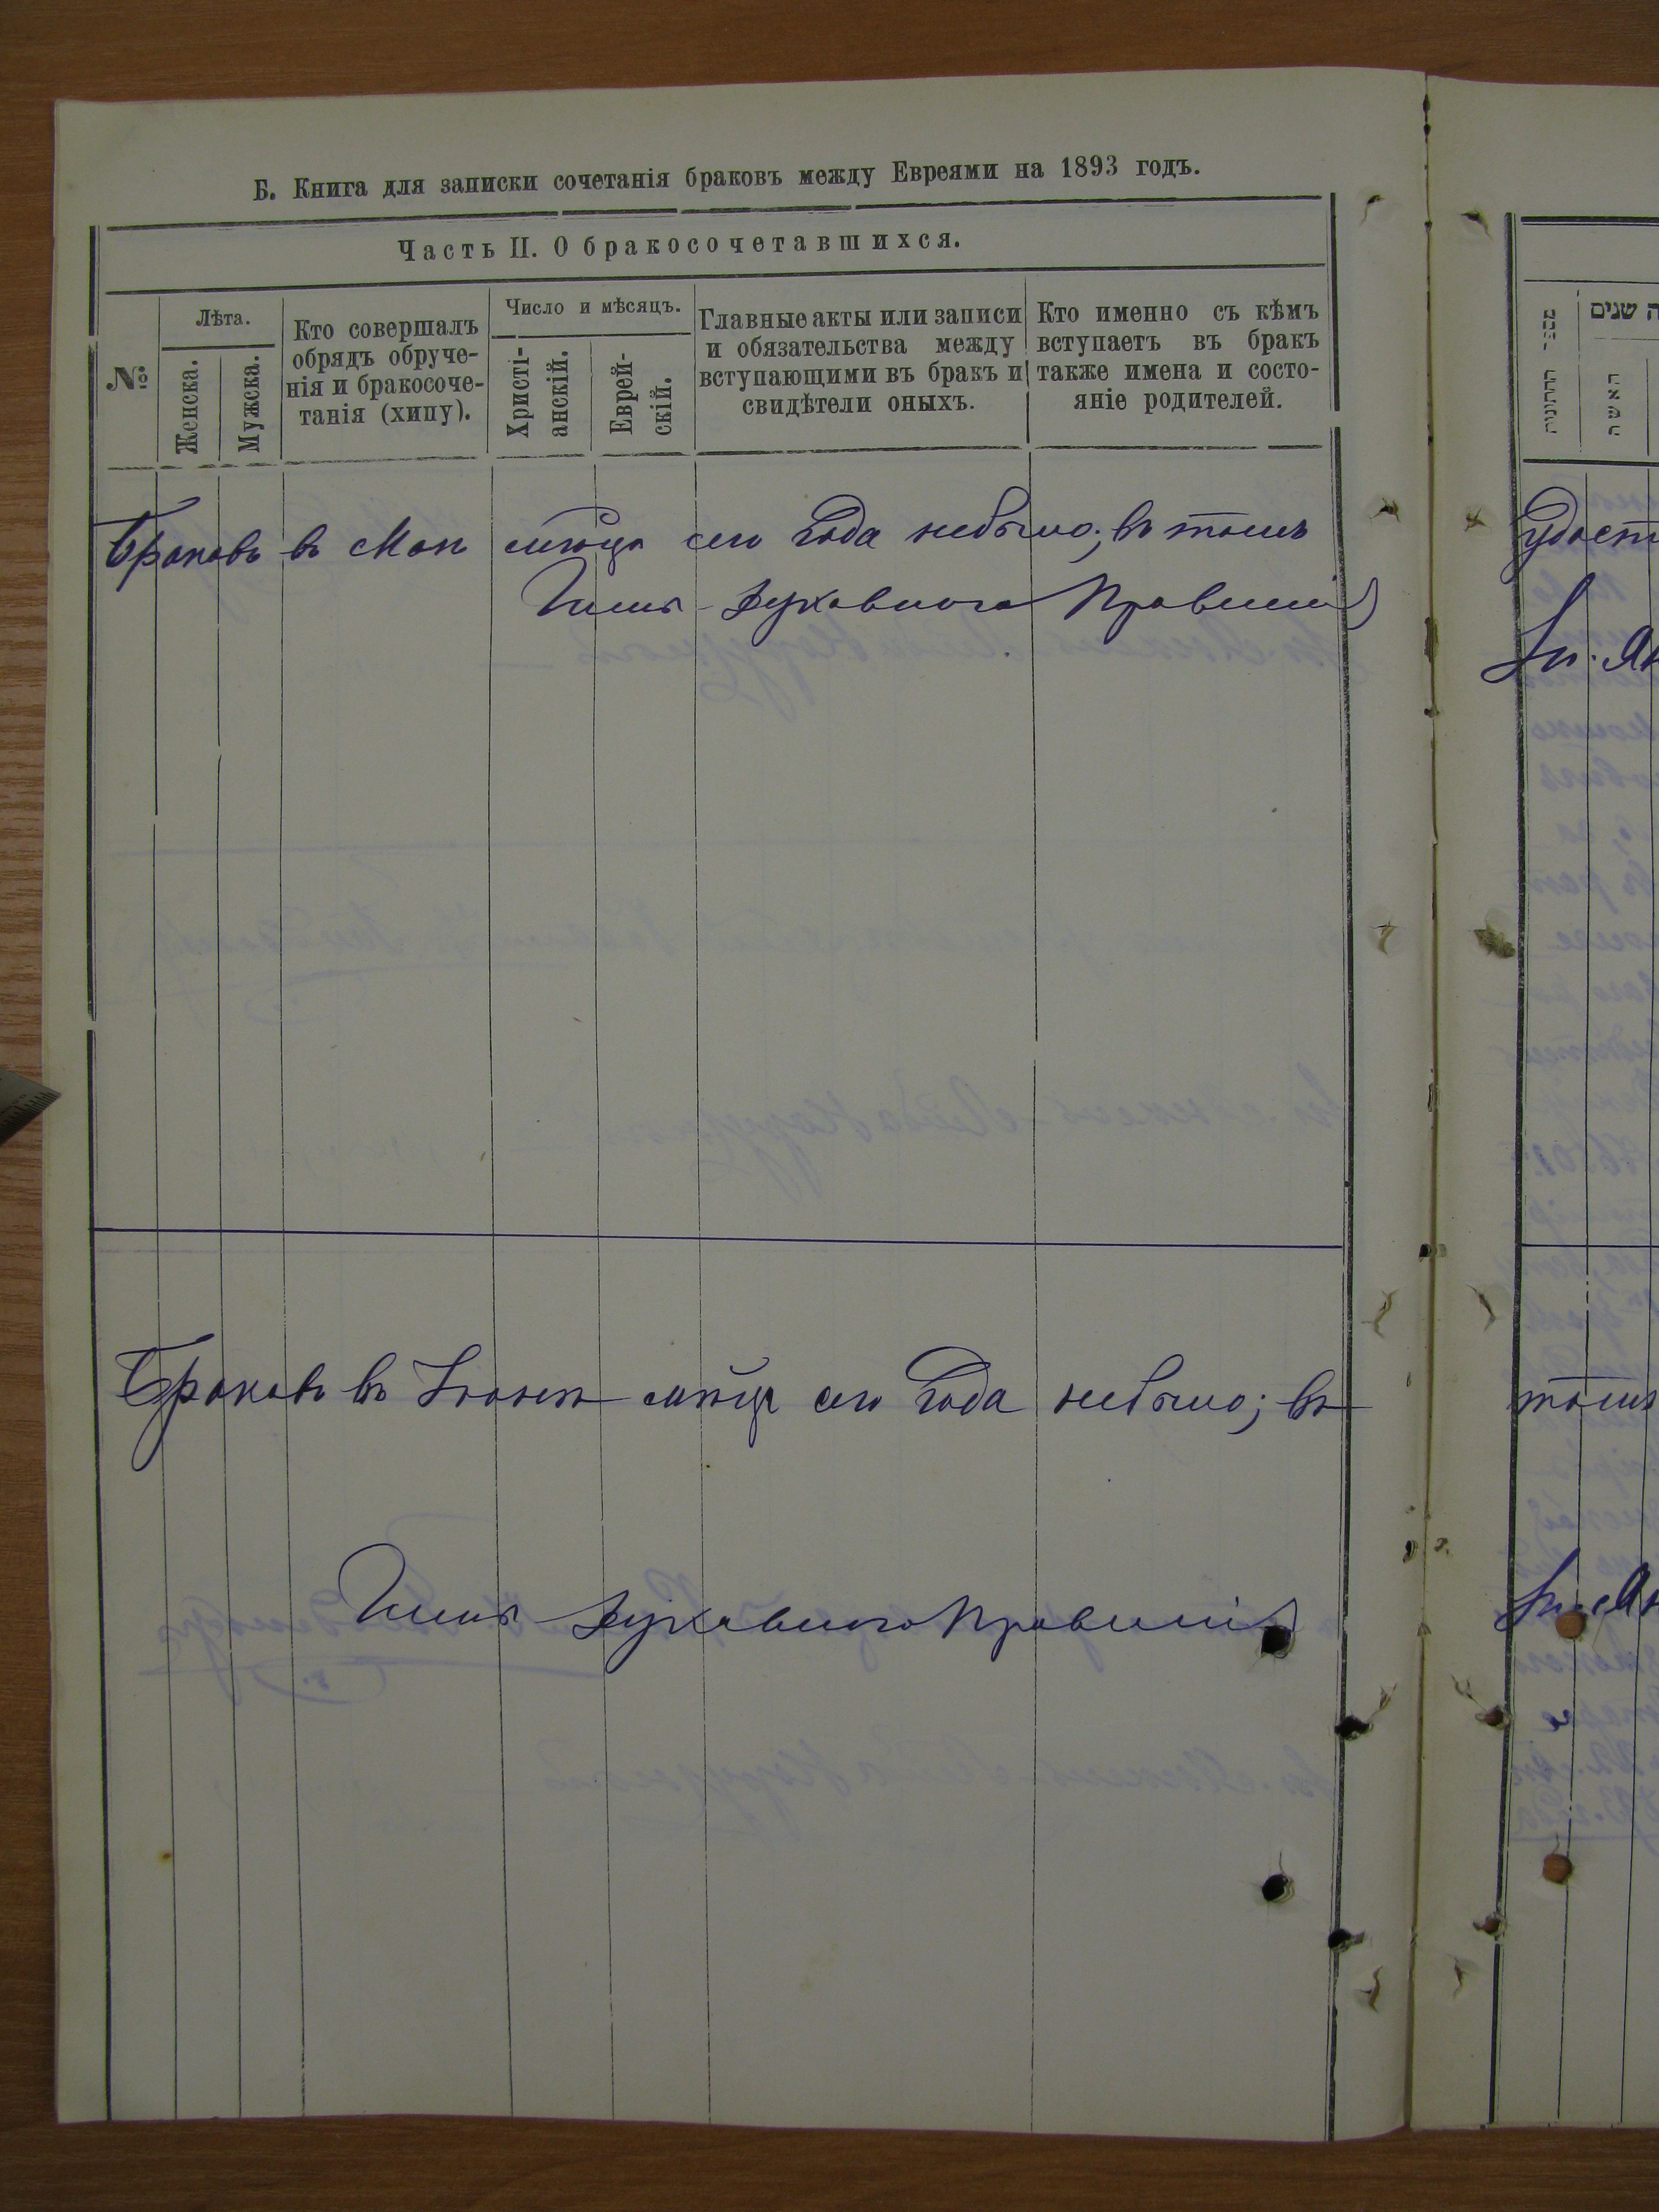 Б. Книга для записки сочетанія браковъ между Евреями на 1893 годъ.
Часть II. О бракосочетавшихся.
№
Лѣта.
Женска.
Мужска.
Кто совершалъ
обрядъ обруче-
нія и бракосоче-
танія (хипу).
Число и мѣсяцъ.
Христі-
анскій.
Еврей-
скій.
Главные акты или записи
и обязательства между
вступающими въ бракъ и
свидѣтели оныхъ.
Кто именно съ кѣмъ
вступаетъ въ бракъ
также имена и состо-
яніе родителей.
Браковъ въ Маѣ мѣсяцѣ сего Года небыло; въ томъ
Члены Духовнаго Правленія
Браковъ въ Іюнѣ мѣсяцѣ сего Года небыло; въ
Члены Духовнаго Правленія
ה שנים
האשה
удост
томъ